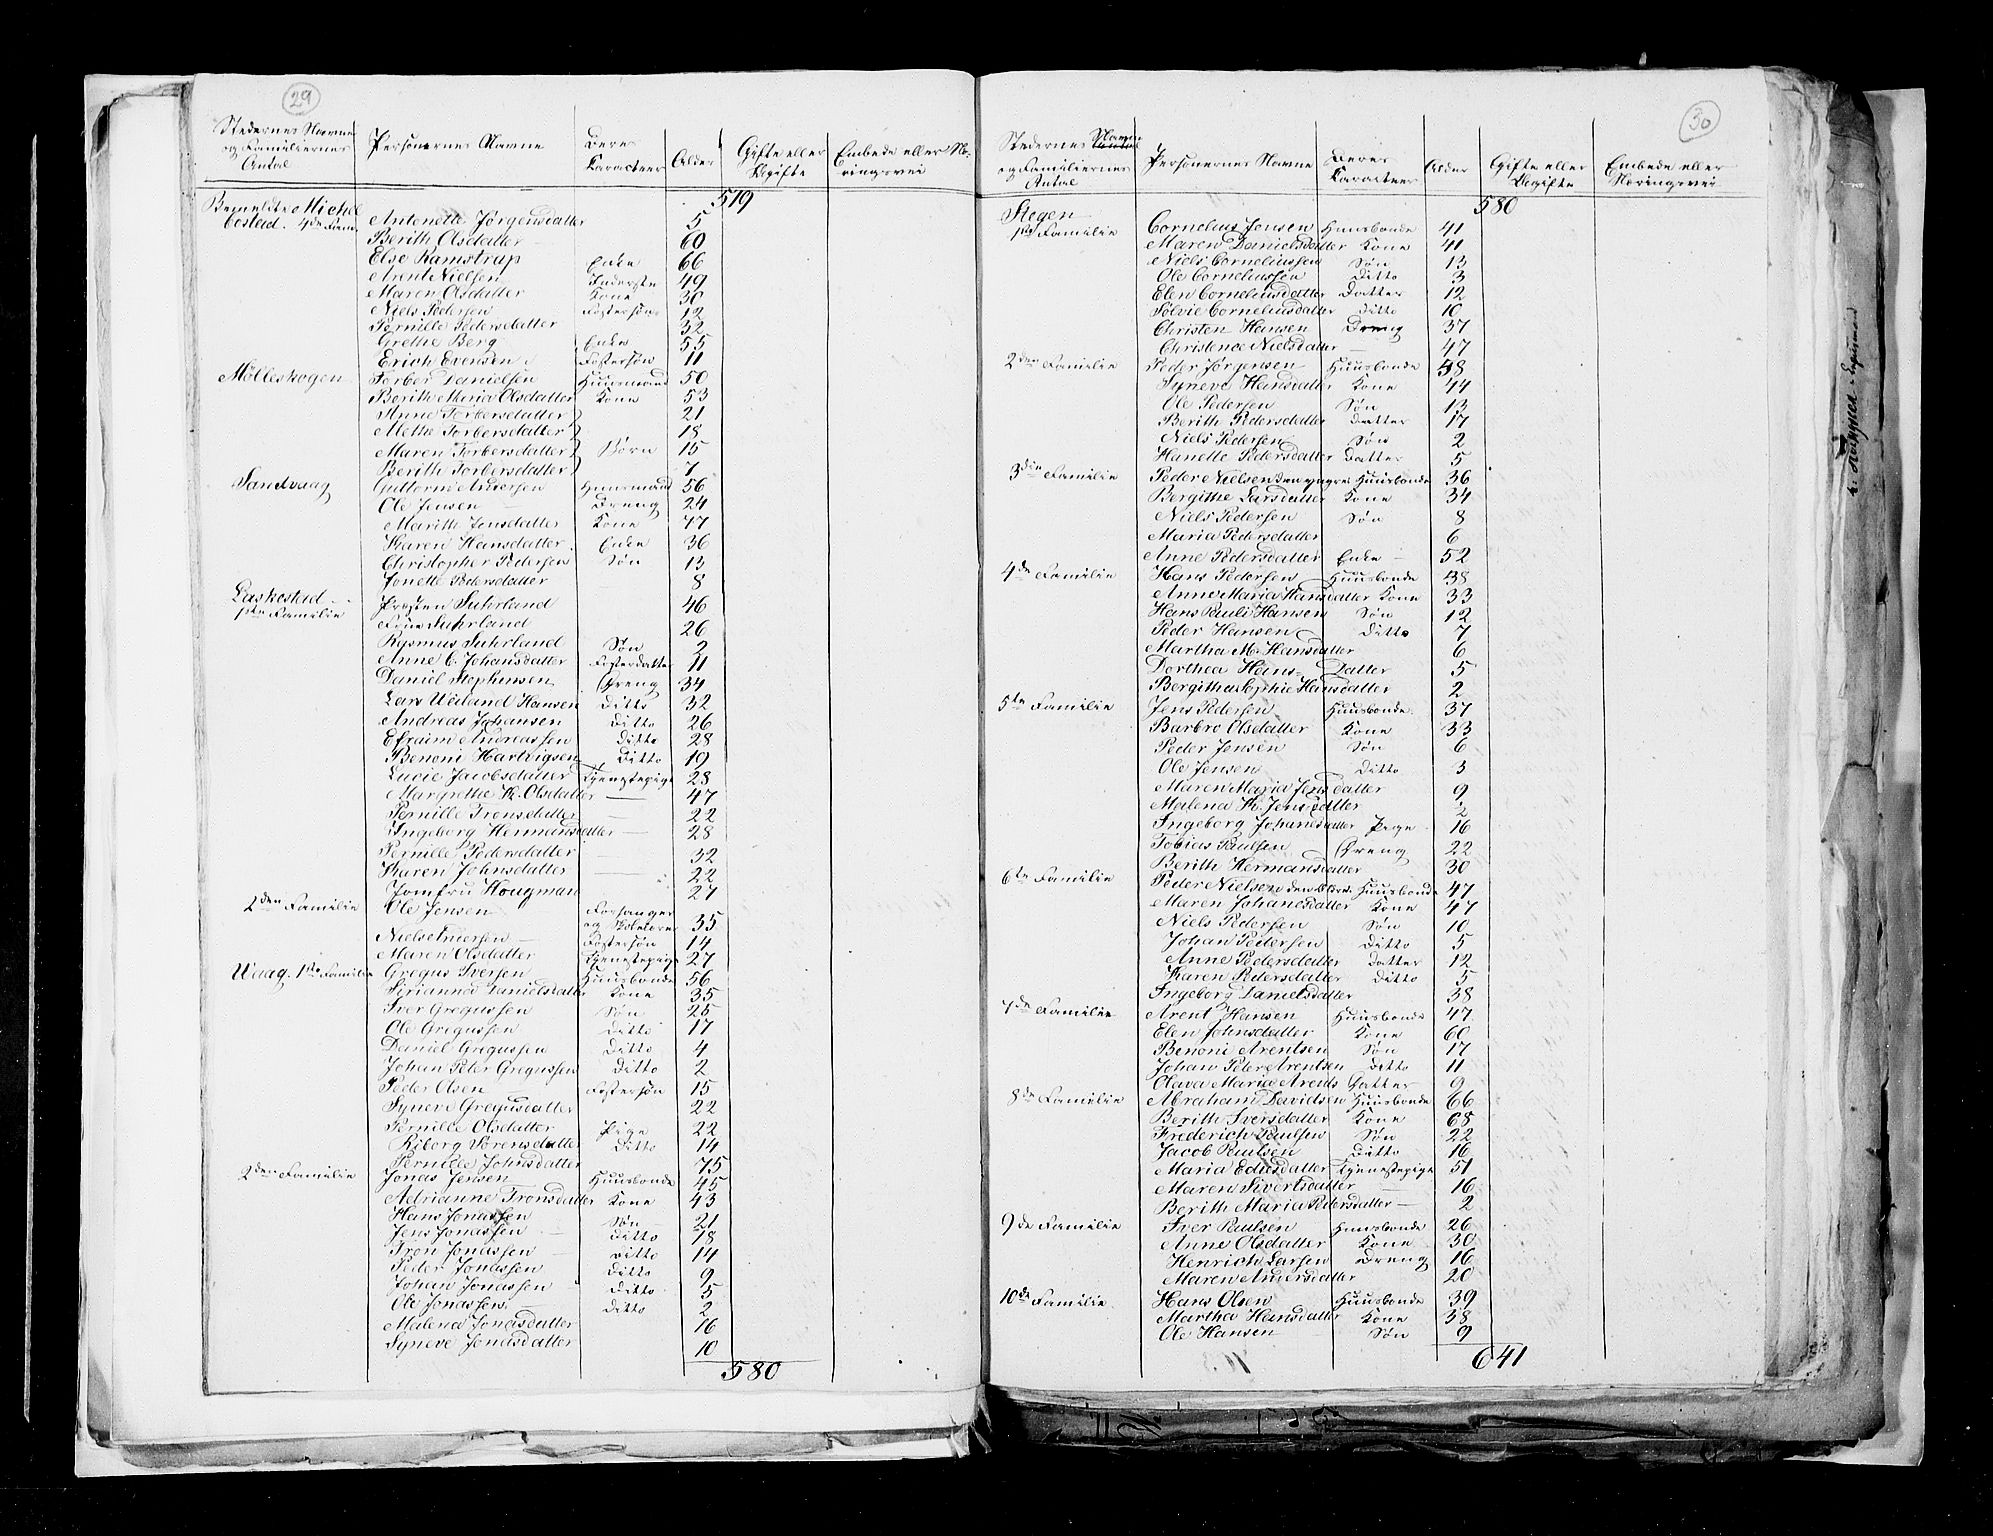 29
Stedernes Navne og Familiernes Antal | Personernes Navne | Deres Karacteer | Alder | Gifte eller Ugifte | Embede eller Næringsvei
519
Bemeldte Michelbostad. 4de Fam. | Antonette Jørgensdatter | 5
Berith Olsdatter — | 60
Else Ramstrup | Enke | 66
Arent Nielsen | Inderste | 49
Maren Olsdatter | Kone | 30
Niels Pedersen | Fostersøn | 12
Pernille Pedersdatter | 32
Grethe Berg | Enke | 55
Erich Evensen | Fostersøn | 11
Mølleskogen | Torber Danielsen | Huusmand | 50
Berith Maria Olsdatter | Kone | 53
Anne Torbersdatter | 21
Methe Torbersdatter | 18
Maren Torbersdatter | Børn | 15
Berith Torbersdatter | 7
Sandvaag | Guttorm Andersen | Huusmand | 56
Ole Jensen — | Dreng | 24
Marith Jensdatter | Kone | 47
Karen Hansdatter | Enke | 36
Christopher Pedersen | Søn | 13
Jonette Pedersdatter | 8
Laskestad — 1ste Familie | Presten Suhrland | 46
Frue Suhrland | 26
Rasmus Suhrland | Søn | 2
Anne C. Johansdatter | Fosterdatter | 11
Daniel Stephensen | Dreng | 34
Lars Weiland Hansen | Ditto | 32
Andreas Johansen | Ditto | 26
Efraim Andreassen | Ditto | 28
Benoni Hartvigsen | Ditto | 19
Lucie Jacobsdatter | Tjenestepige | 28
Margrethe K. Olsdatter — | 47
Pernille Tronsdatter — | 22
Ingeborg Hermansdatter — | 28
Pernille Pedersdatter — | 32
Karen Johnsdatter — | 22
Jomfru Hougman | 27
2den Familie | Ole Jensen | Forsanger og Skolelærer | 35
Niels Andersen — | Fostersøn | 14
Maren Olsdatter | Tjenestepige | 27
Waag. 1ste Familie | Gregus Iversen | Huusbonde | 56
Sirianna Danielsdatter | Kone | 35
Iver Gregussen | Søn | 25
Ole Gregussen | Ditto | 17
Daniel Gregussen | Ditto | 4
Johan Peter Gregussen | Ditto | 2
Peder Olsen | Fostersøn | 15
Syneve Gregusdatter | 22
Pernille Olsdatter | Pige | 22
Riborg Sørensdatter | Ditto | 14
Pernille Johnsdatter | 75
2den Familie | Jonas Jensen | Huusbonde | 45
Adrianne Tronsdatter | Kone | 43
Hans Jonassen | Søn | 21
Jens Jonassen — | Ditto | 18
Tron Jonassen — | Ditto | 14
Peder Jonassen | Ditto | 9
Johan Jonassen — | Ditto | 5
Ole Jonassen | Ditto | 2
Malena Jonasdatter | 16
Syneve Jonasdatter | 10
580
30
Stedernes Navne og Familiernes Antal | Personernes Navne | Deres Karacteer | Alder | Gifte eller Ugifte | Embede eller Næringsvei
580
Stegen 1ste Familie | Cornelius Jensen | Huusbonde | 41
Maren Danielsdatter | Kone | 41
Niels Corneliussen | Søn | 13
Ole Corneliussen | Ditto | 3
Elen Corneliusdatter | Datter | 12
Sølvie Corneliusdatter | Ditto | 10
Christen Hansen | Dreng | 37
Christence Nielsdatter — | 47
2den Familie | Peder Jørgensen | Huusbonde | 58
Syneve Hansdatter | Kone | 44
Ole Pedersen | Søn | 13
Berith Pedersdatter | Datter | 17
Niels Pedersen | Søn | 2
Hanette Pedersdatter | Datter | 5
3die Familie | Peder Nielsen den yngre | Huusbonde | 36
Bergithe Larsdatter | Kone | 34
Niels Pedersen | Søn | 8
Maria Pedersdatter | 6
Anne Pedersdatter | Enke — | 52
4de Familie | Hans Pedersen | Huusbonde | 38
Anne Maria Hansdatter | Kone | 33
Hans Pauli Hansen | Søn | 12
Peder Hansen | Ditto | 7
Martha M. Hansdatter | 6
Dorthea Hans-Datter | 5
Bergitha Sophie Hansdatter | 2
5te Familie | Jens Pedersen | Huusbonde | 37
Barbro Olsdatter | Kone | 33
Peder Jensen | Søn | 6
Ole Jensen | Ditto | 3
Maren Maria Jensdatter | 9
Malena K. Jensdatter | 2
Ingeborg Johansdatter | Pige | 16
Tobias Paulsen | Dreng | 22
Berith Hermansdatter | 30
6te Familie | Peder Nielsen den eldre | Huusbonde | 47
Maren Johansdatter | Kone | 47
Niels Pedersen | Søn | 10
Johan Pedersen | Ditto | 5
Anne Pedersdatter | Datter | 12
Karen Pedersdatter | Ditto | 5
Ingeborg Danielsdatter | 38
7de Familie | Arent Hansen | Huusbonde | 47
Elen Johnsdatter | Kone | 60
Benoni Arentsen | Søn | 17
Johan Peter Arentsen | Ditto | 11
Olava Maria Arents | Datter | 9
8de Familie | Abraham Davidsen | Huusbonde | 66
Berith Iversdatter | Kone | 68
Friderich Paulsen | Søn | 22
Jacob Paulsen | Ditto | 16
Maria Edisdatter | Tjenestepige | 51
Maren Sivertsdatter — | 16
Berith Maria Pedersdatter — | 2
9de Familie | Iver Paulsen | Huusbonde | 26
Anne Olsdatter | Kone | 30
Henrich Larsen | Dreng | 16
Maren Andersdatter | 20
10de Familie | Hans Olsen | Huusbonde | 39
Martha Hansdatter | Kone | 38
Ole Hansen | Søn | 9
641